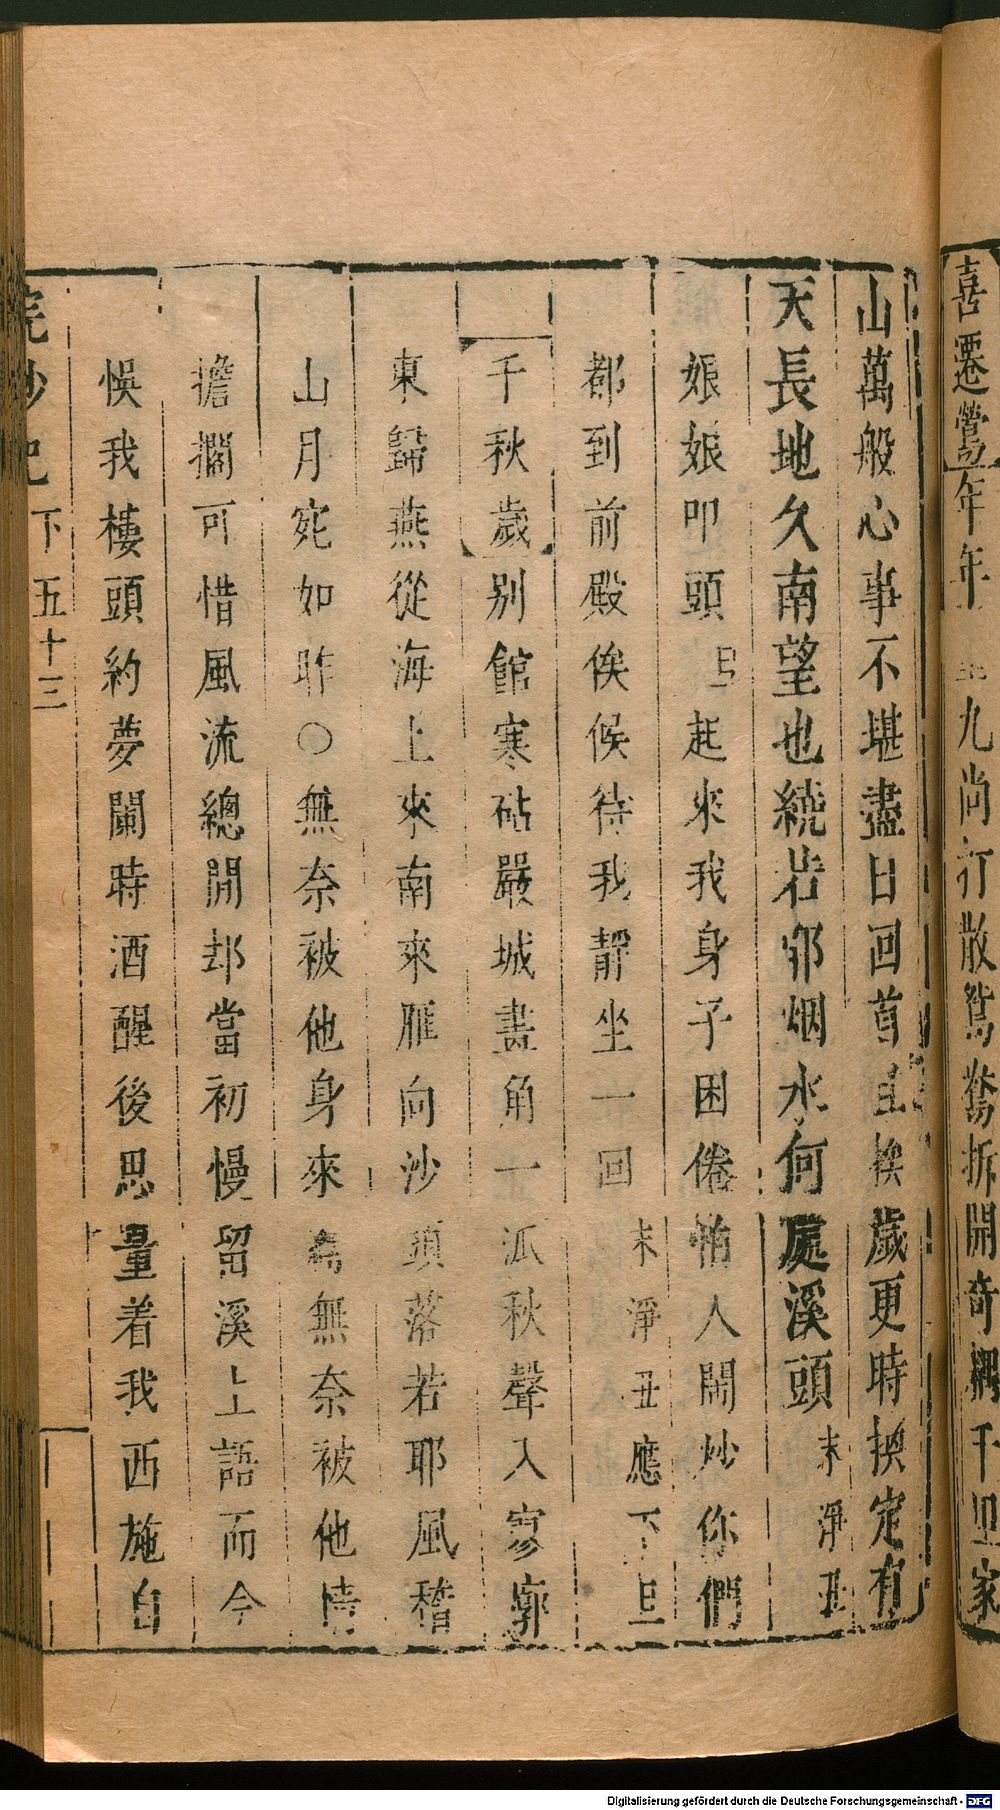 喜遷鶯年年 九尚打散鴛鴦拆開奇耦千里家
山萬般心事不堪盡日回首且挨歲更時換定有
天長地久南望也繞若邪烟水何處溪頭末淨丑
娘娘叩頭旦起來我身子困倦怕人閙炒你們
都到前殿俟候待我靜坐一回末淨丑應下旦
千秋歲別館寒砧嚴城畫角一泒秋聲入寥廓
東歸燕從海上來南來雁向沙頭落若耶風稽
山月宛如昨○無奈被他身來 無奈被他情
擔擱可惜風流總閒却當初慢留溪上語而今
悞我樓頭約夢闌時酒醒後思量着我西施自
浣紗記 下 五十三
Digitalisierung gefördert durch die Deutsche Forschungsgemeinschaft - DFG